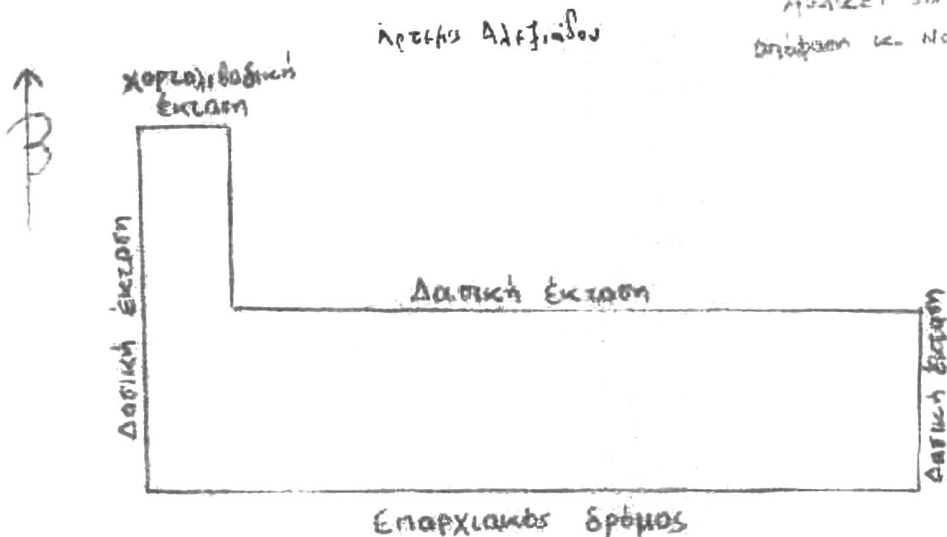 Αρτεμις Αλεξιάδου
απόφαση κ. Νο
χορτολιβαδική
έκταση
Β
Δασική έκταση
Δασική έκταση
Δασική έκταση
Επαρχιακός δρόμος